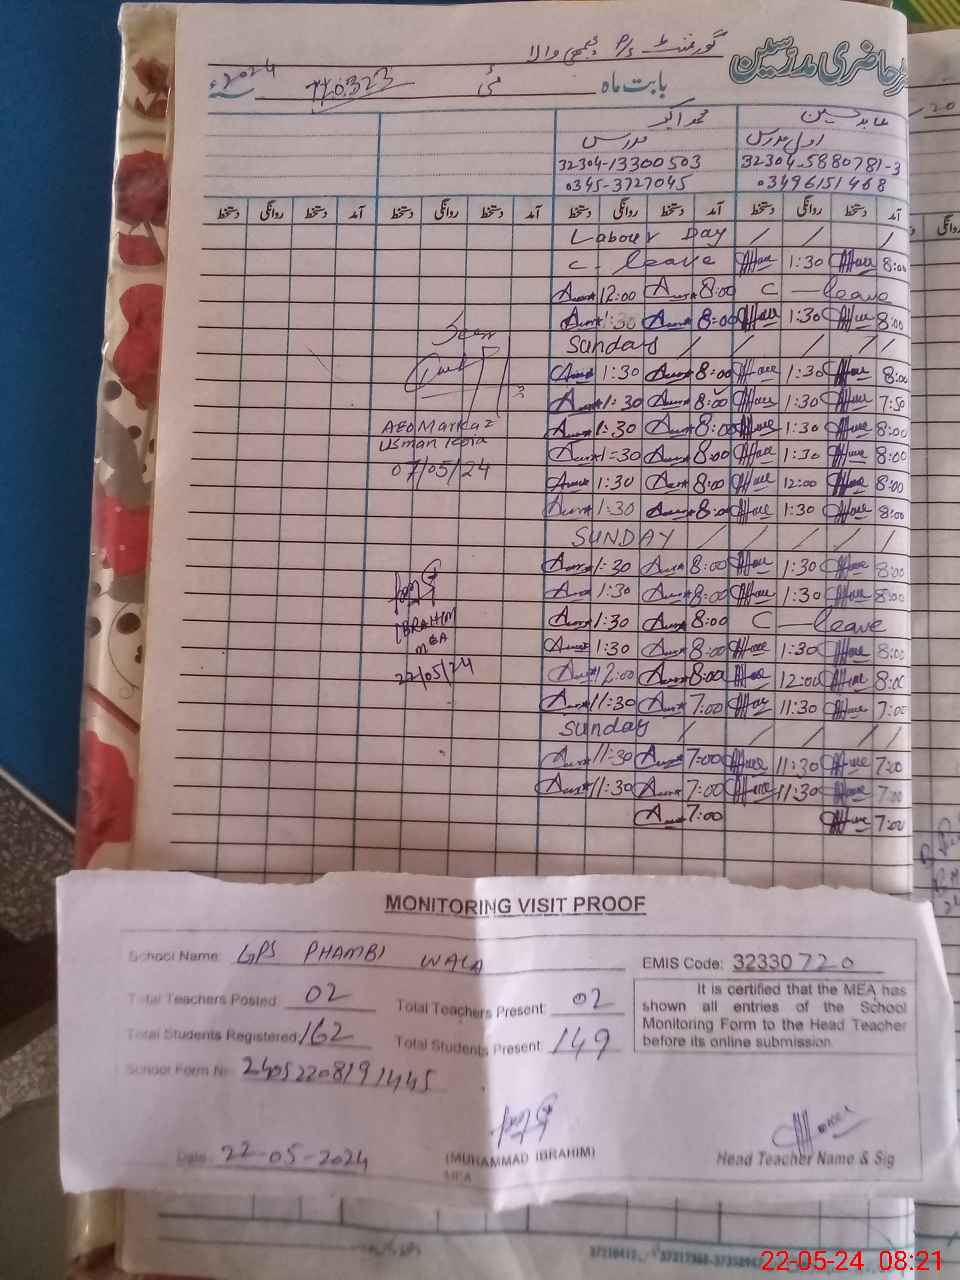 رجسٹر حاضری مدرسین گورنمنٹ P/s پھمبی والا
بابت ماہ مئی 2024ء
عابد حسین محمد اکبر
اول مدرس مدرس
32304-5880781-3 32304-13300503
03496151468 0345-3727045
آمد دستخط روانگی دستخط آمد دستخط روانگی دستخط آمد دستخط روانگی دستخط آمد دستخط روانگی دستخط
Labour Day / / / /
C. leave 1:30 8:00
12:00 8:00 C - leave
1:30 8:00 1:30 8:00
Sunday / / / / /
1:30 8:00 1:30 8:00
1:30 8:00 1:30 7:50
1:30 8:00 1:30 8:00
1:30 8:00 1:30 8:00
1:30 8:00 12:00 8:00
1:30 8:00 1:30 8:00
SUNDAY / / / / /
1:30 8:00 1:30 8:00
1:30 8:00 1:30 8:00
1:30 8:00 C - leave
1:30 8:00 1:30 8:00
12:00 8:00 12:00 8:00
11:30 7:00 11:30 7:00
Sunday / / / / /
11:30 7:00 11:30 7:00
11:30 7:00 11:30 7:00
7:00 7:00
Seen
AEO Markaz
Usman
07/05/24
IBRAHIM
MEA
22/05/24
MONITORING VISIT PROOF
School Name: GPS PHAMBI WALA
EMIS Code: 32330720
Total Teachers Posted: 02 Total Teachers Present: 02
Total Students Registered 162 Total Students Present: 149
School Form No: 24052208191445
It is certified that the MEA has
shown all entries of the School
Monitoring Form to the Head Teacher
before its online submission.
Date: 22-05-2024
(MUHAMMAD IBRAHIM)
MEA
Head Teacher Name & Sig
22-05-24 08:21